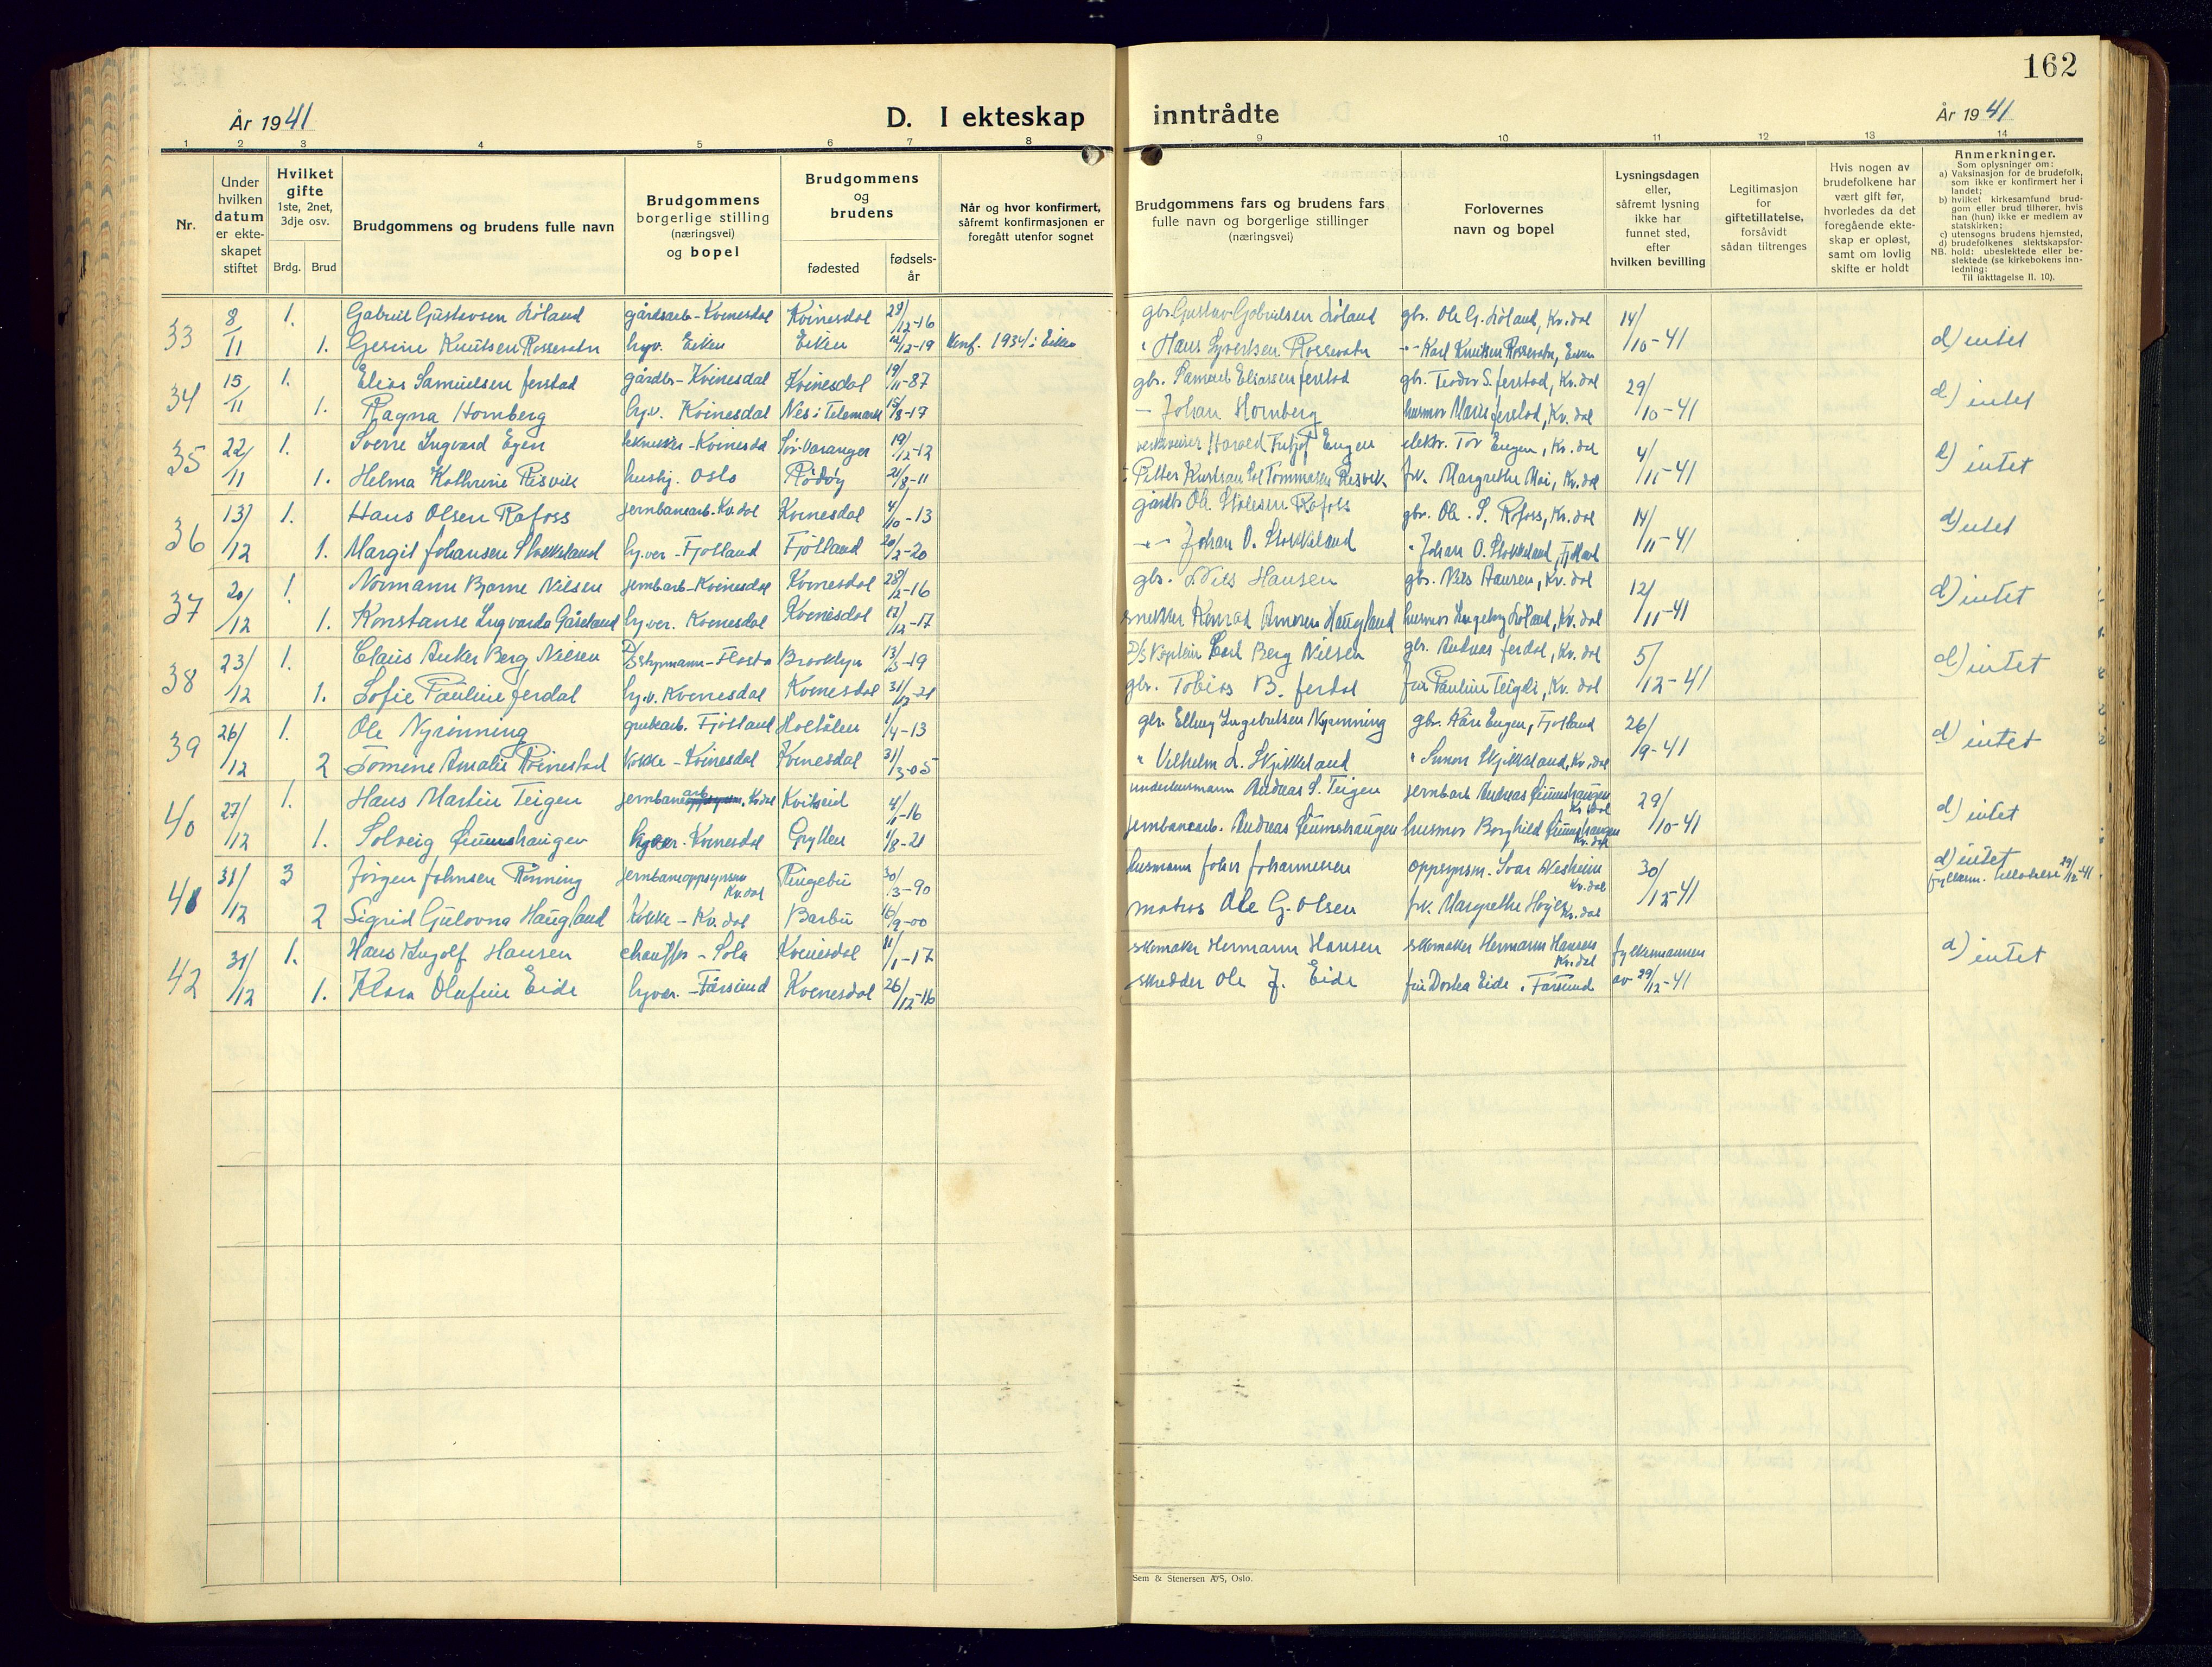 162
År 1941
D. I ekteskap inntrådte
År 1941
1 2 3 4 5 6 7 8 9 10 11 12 13 14
Nr.
Under hvilken datum er ekteskapet stiftet
Hvilket gifte 1ste, 2net, 3dje osv.
Brdg. Brud
Brudgommens og brudens fulle navn
Brudgommens borgerlige stilling (næringsvei) og bopel
Brudgommens og brudens
fødested
fødsels-år
Når og hvor konfirmert, såfremt konfirmasjonen er foregått utenfor sognet
Brudgommens fars og brudens fars fulle navn og borgerlige stillinger (næringsvei)
Forlovernes navn og bopel
Lysningsdagen eller, såfremt lysning ikke har funnet sted, efter hvilken bevilling
Legitimasjon for giftetillatelse, forsåvidt sådan tiltrenges
Hvis nogen av brudefolkene har vært gift før, hvorledes da det foregående ekteskap er opløst, samt om lovlig skifte er holdt
Anmerkninger.
Som oplysninger om:
a) Vaksinasjon for de brudefolk, som ikke er konfirmert her i landet;
b) hvilket kirkesamfund brudgom eller brud tilhører, hvis han (hun) ikke er medlem av statskirken;
c) utensogns brudens hjemsted,
d) brudefolkenes slektskapsforhold: ubeslektede eller beslektede (se kirkebokens innledning:
NB.
Til iakttagelse II. 10).
33 8/11 1. Gabriel Gustavsen Løland gårdsarb - Kvinesdal Kvinesdal 28/12-16 gbr. Gustav Gabrielsen Løland gbr. Ole G. Løland, Kv.dal 14/10-41 d) intet
1. Gesine Knutsen Rossevatn hyv. Eiken Eiken 12-19 Konf. 1934 i Eiken " Hans Syvertsen Rossevatn " - Karl Knutsen Rossevatn, Eiken
34 15/11 1. Elias Samuelsen Jerstad gårdbr - Kvinesdal Kvinesdal 19/11-87 gbr. Samuel Eliassen Jerstad gbr. Teodor S. Jerstad, Kv.dal 29/10-41 d) intet
1. Ragna Homberg hy.v. Kvinesdal Nes i Telemark 15/8-17 - Johan Homberg husmor Marie Jerstad, Kv.dal
35 22/11 1. Sverre Ingvard Egen tekniker - Kvinesdal Sør-Varanger 19/12-12 Harald Fritjof Engen elektr. Tor Engen, Kv.dal 4/11-41 d) intet
1. Helma Kathrine Risvik hushj. Oslo Rödöy 21/8-11 Petter Kristian Tommasen Risvik frk. Margrethe Moi, Kv.dal
36 13/12 1. Hans Olsen Rafoss jernbanearb. Kv.dal Kvinesdal 4/10-13 gårdbr. Ole Ståelesen Rafoss gbr. Ole. S. Rafoss, Kv.dal 14/11-41 d) intet
1. Margit Johansen Stokkeland hy.ver - Fjotland Fjotland 20/2-20 - " - Johan O. Stokkeland " Johan O. Stokkeland, Fjotland
37 20/12 1. Normann Bjarne Nilsen jernbarb - Kvinesdal Kvinesdal 28/2-16 gbr. Nils Hansen gbr. Nils Hansen, Kv.dal 12/11-41 d) intet
1. Konstanse Ingvarda Gåseland hy.ver. Kvinesdal Kvinesdal 17/12-17 snekker Konrad Haugland husmor Ingeborg Løland, Kv.dal
38 23/12 1. Claus Anker Berg Nielsen D/S styrmann - Flosta Brooklyn 13/3-19 D/S kaptein Carl Berg Nielsen gbr. Andreas Jerdal, Kv.dal 5/12-41 d) intet
1. Sofie Pauline Jerdal hy.v. Kvinesdal Kvinesdal 31/12-21 gbr. Tobias B. Jerdal fru Pauline Teigdi, Kv.dal
39 26/12 1. Ole Nyrönning grubearb. Fjotland Holtålen 1/4-13 gbr. Elling Ingebriktsen Nyrönning gbr. Kåre Engen, Fjotland 26/9-41 d) intet
2 Tomine Amalie Röinestad kokke - Kvinesdal Kvinesdal 31/3-05 " Vilhelm L. Skjekkeland " Simon Skjekkeland, Kv.dal
40 27/12 1. Hans Martin Teigen jernbanearb. Kv.dal Kviteseid 4/6-16 Andreas S. Teigen jernbarb Andreas Gumshaugen Kv.dal 29/10-41 d) intet
1. Solveig Gumshaugen hyver. Kvinesdal Grytten 1/8-21 jernbanearb. Andreas Gumshaugen husmor Borghild Gumshaugen Kv.dal
41 31/12 3 Jörgen Johnsen Rönning jernbaneoppsynsm Kv.dal Ringebu 30/3-90 husmann John Johannessen oppsynsm. Ivar Vesheim Kv.dal 30/12-41 d) intet fylkem. tillatelse 29/12-41
2 Sigrid Gulovna Haugland kokke - Kv.dal Barbu 16/9-00 matros Ole G. Olsen frk. Margrethe Höye Kv.dal
42 31/12 1. Hans Ingolf Hansen chauffør - Sola Kvinesdal 11/1-17 skomaker Hermann Hansen skomaker Hermann Hansen Kv.dal fylkesmannen av 29/12-41 d) intet
1. Klara Olufine Eide hyver. - Farsund Kvinesdal 26/12-16 skredder Ole J. Eide fru Dortea Eide, Farsund
Sem & Stenersen A/S, Oslo.